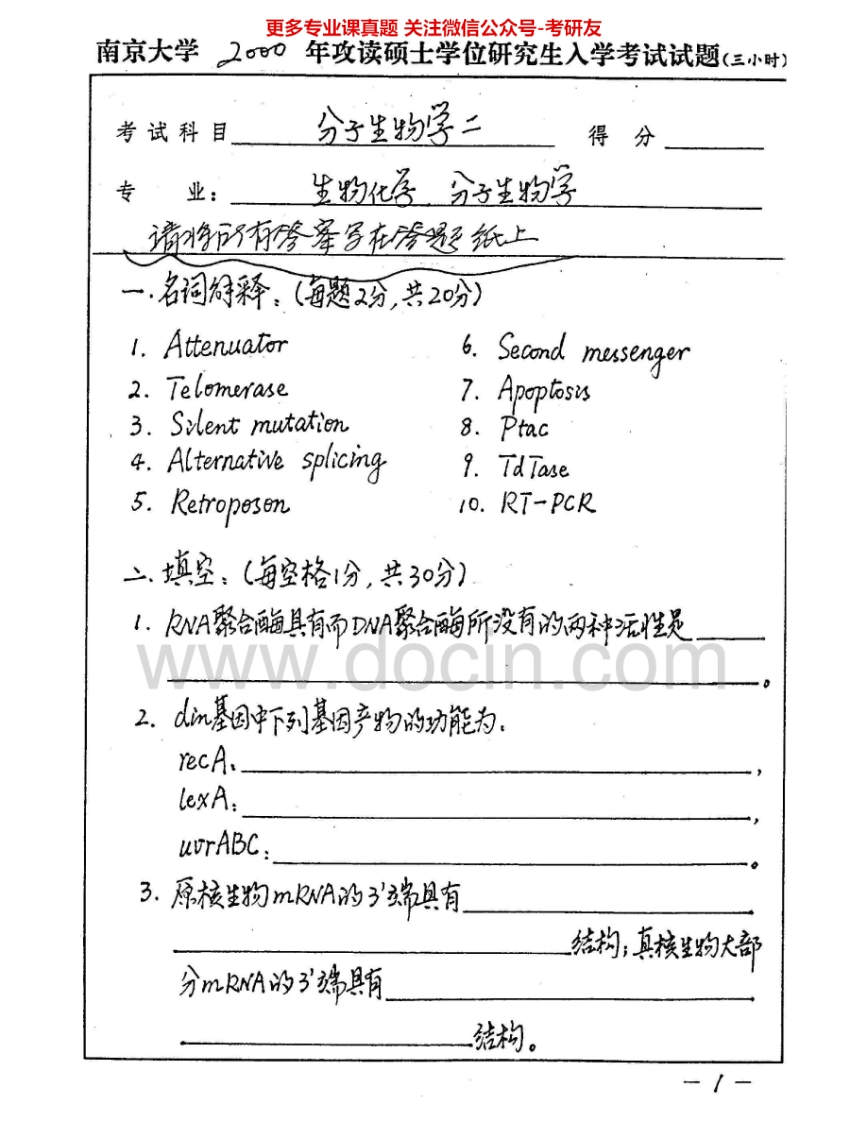 更多专业课真题 关注微信公众号-考研友
南京大学 2000 年攻读硕士学位研究生入学考试试题(三小时)
考试科目 分子生物学二 得 分
专 业: 生物化学、分子生物学
请将所有答案写在答题纸上
一.名词解释:(每题2分,共20分)
1. Attenuator
2. Telomerase
3. Silent mutation
4. Alternative splicing
5. Retroposon
6. Second messenger
7. Apoptosis
8. Ptac
9. TdTase
10. RT-PCR
二.填空:(每空格1分,共30分)
1. RNA聚合酶具有而DNA聚合酶所没有的两种活性是
。
www.docin.com
2. din基因中下列基因产物的功能为:
recA: ,
lexA: ,
uvrABC: 。
3. 原核生物mRNA的3'端具有
结构;真核生物大部
分mRNA的3'端具有
结构。
- 1 -